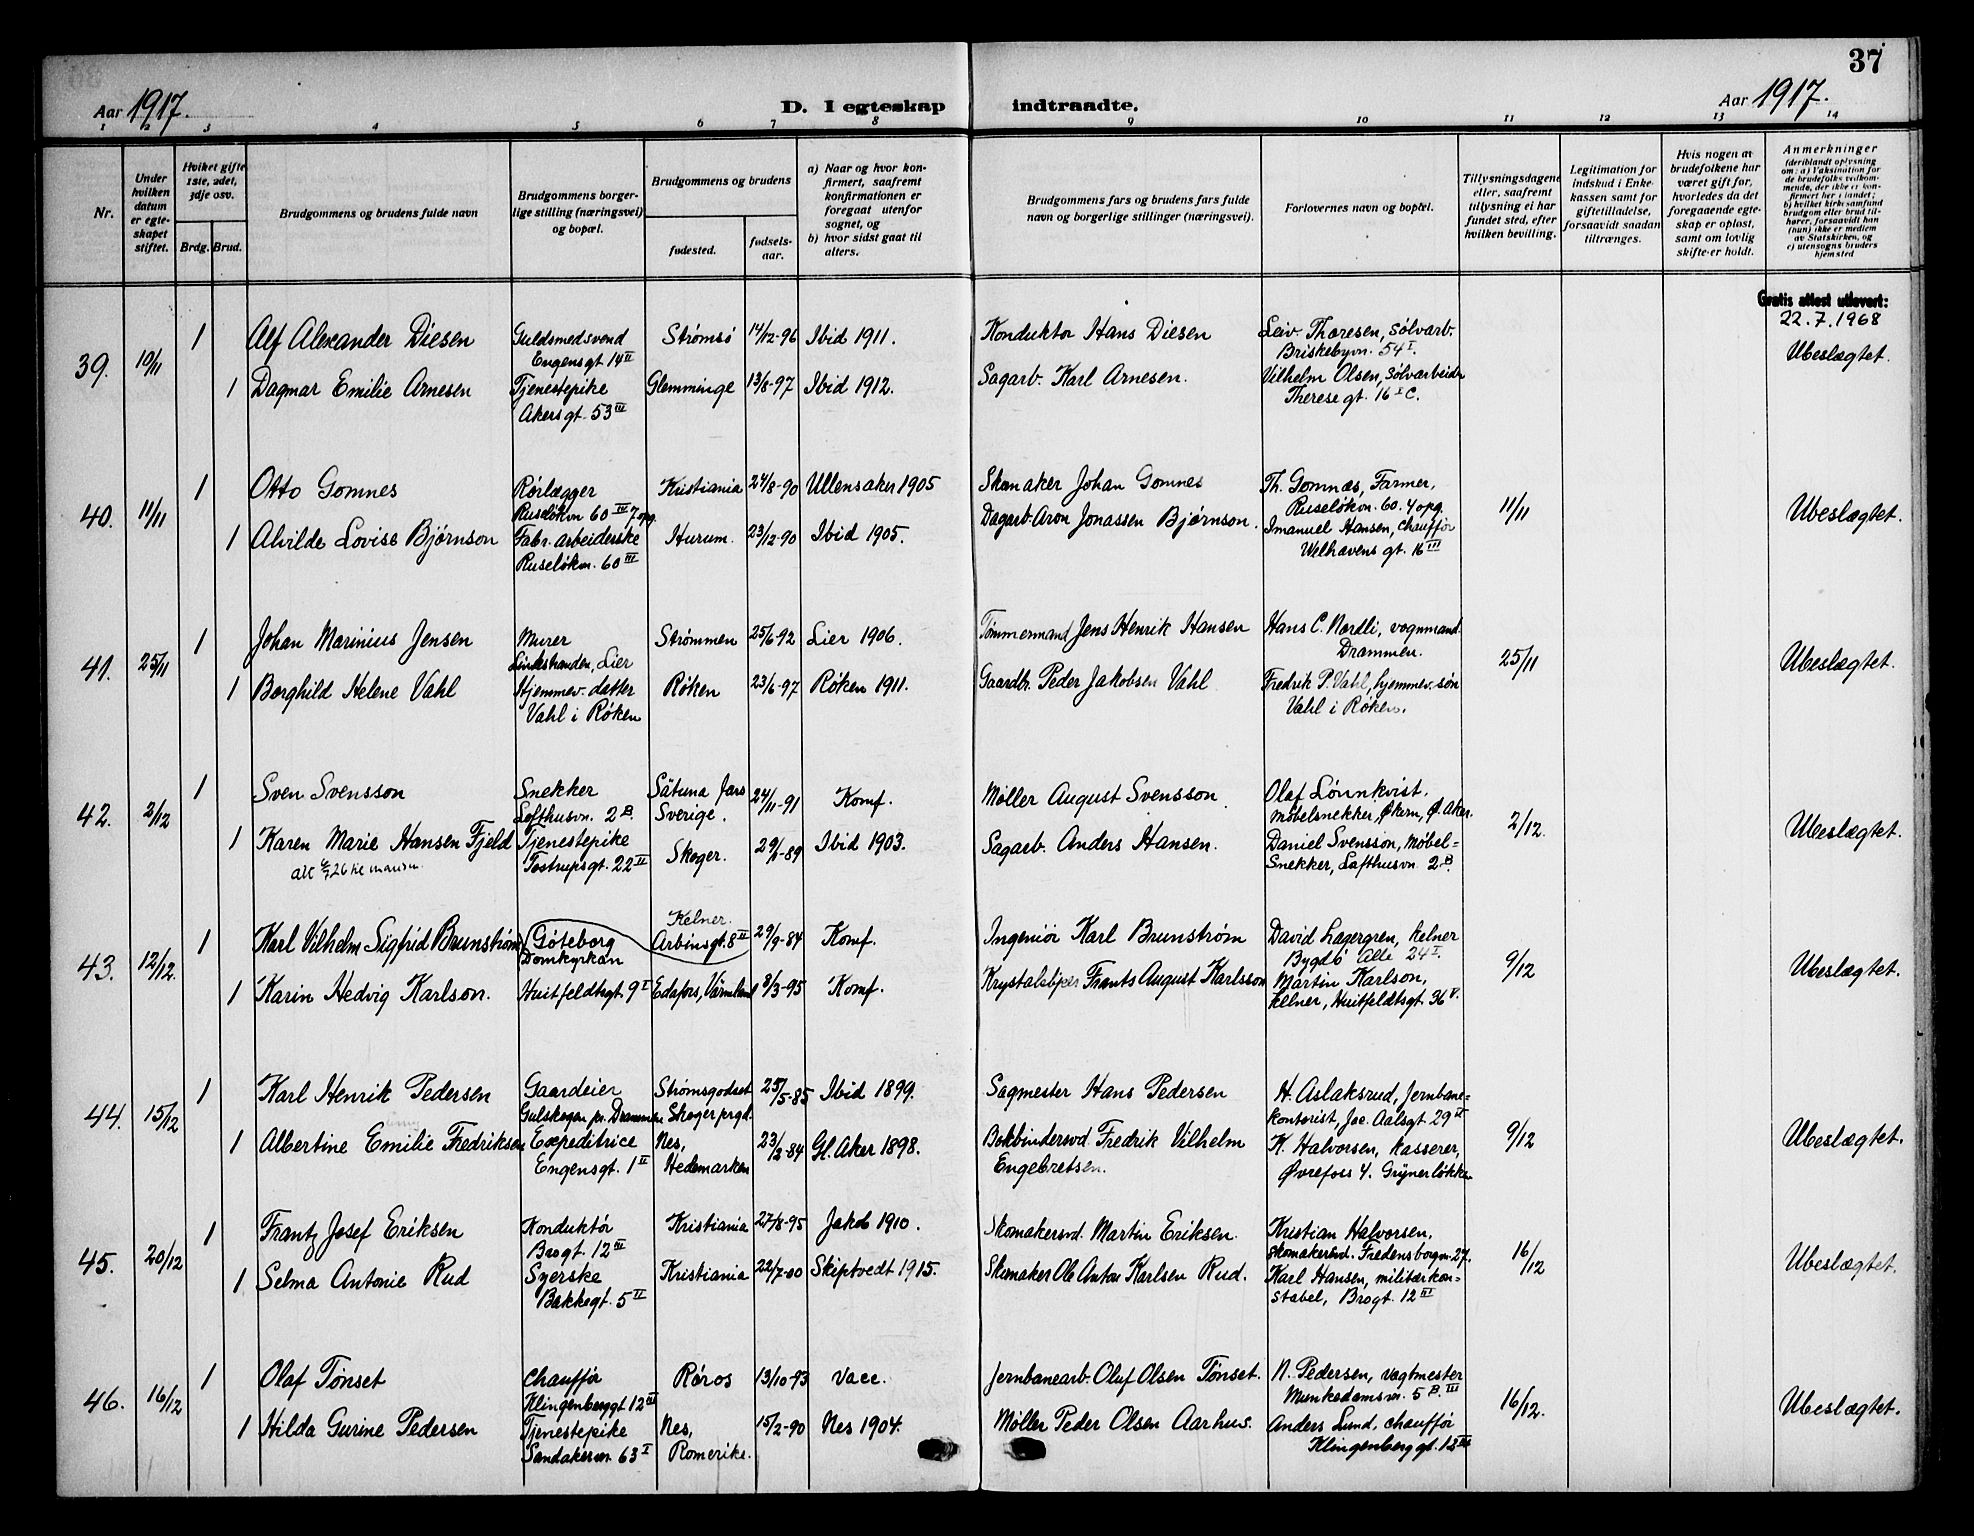 37
Aar 1917.
D. I egteskap indtraadte.
Aar 1917.
1 2 3 4 5 6 7 8 9 10 11 12 13 14
Nr.
Under hvilken datum er egteskapet stiftet.
Hvilket gifte 1ste, 2det, 3dje osv.
Brdg. Brud.
Brudgommens og brudens fulde navn
Brudgommens borgerlige stilling (næringsvei) og bopæl.
Brudgommens og brudens
fødested.
fødselsaar.
a) Naar og hvor konfirmert, saafremt konfirmationen er foregaat utenfor sognet, og
b) hvor sidst gaat til alters.
Brudgommens fars og brudens fars fulde navn og borgerlige stillinger (næringsvei).
Forlovernes navn og bopæl.
Tillysningsdagene eller, saafremt tillysning ei har fundet sted, efter hvilken bevilling.
Legitimation for indskud i Enkekassen samt for giftetilladelse, forsaavidt saadan tiltrænges.
Hvis nogen av brudefolkene har været gift før, hvorledes da det foregaaende egteskap er opløst, samt om lovlig skifte er holdt.
Anmerkninger
(deriblandt oplysning om: a) Vaksination for de brudefolks vedkommende, der ikke er konfirmert her i landet; b) hvilket kirkesamfund brudgom eller brud tilhører, forsaavidt han (hun) ikke er medlem av Statskirken, og c) utensogns bruders hjemsted
Gratis attest utlevert:
22.7.1968
39. 10/11
1 Alf Alexander Diesen Guldsmedsvend Strømsø 14/12-96 Ibid 1911. Konduktør Hans Diesen Leiv Thoresen, Sølvarb. Ubeslægtet.
Engensgt 14 II Briskebyvn. 54 I.
1 Dagmar Emilie Arnesen Tjenestepike Glemminge 13/8-97 Ibid 1912. Sagarb. Karl Arnesen. Vilhelm Olsen, Sølvarbeider
Akersgt. 53 III Therese gt. 16 I C.
40. 11/11
1 Otto Gomnes Rørlægger Kristiania 24/8-90 Ullensaker 1905 Skomaker Johan Gomnes Th. Gomnæs, Farmer, 11/11 Ubeslægtet.
Ruseløkvn 60 III 7 opg. Ruseløkvn. 60. 4 opg.
1 Alvilde Lovise Bjørnson Fabr. arbeiderske Hurum. 23/12-90 Ibid 1905. Dagarb. Aron Jonassen Bjørnson. Imanuel Hansen, chauffør
Ruseløkvn. 60 III Welhavens gt. 16 III
41. 25/11
1 Johan Marinius Jensen Murer Strømmen 25/6-92 Lier 1906. Tømmermand Jens Henrik Hansen Hans C. Nordli, vognmand. 25/11 Ubeslægtet.
Linnestranden, Lier Drammen.
1 Borghild Helene Vahl Hjemmev. datter Røken 23/6-97 Røken 1911. Gaardbr. Peder Jakobsen Vahl Fredrik P. Vahl, hjemmev. søn
Vahl i Røken Vahl i Røken.
42. 2/12
1 Sven Svensson Snekker Sätuna Jars 24/11-91 Komf. Møller August Svensson Olaf Lönnkvist. 2/12. Ubeslægtet.
Lofthusvn. 2 B. Sverige. Møbelsnekker, Økern, Ø. Aker.
1 Karen Marie Hansen Fjeld Tjenestepike Skoger. -89 Ibid 1903. Sagarb. Anders Hansen. Daniel Svensson, Møbel=
Tostrupsgt. 22 II Snekker, Lofthusvn. 2 B.
43. 12/12.
1 Karl Vilhelm Sigfrid Brunström Göteborg Kelner. 29/9-84 Komf. Ingeniör Karl Brunström David Lagergren, kelner 9/12 Ubeslægtet.
Domkyrkan Arbinsgt. 8 II Bygdö Allé 24 I.
1 Karin Hedvig Karlson. Huitfeldtsgt. 9 I Edafors, Värmland 8/3-95 Komf. Krystalsliper Frants August Karlsson Martin Karlson,
kelner, Huitfeldtsgt. 36 V.
44. 15/12
1 Karl Henrik Pedersen Gaardeier Strømsgodset 25/5-85 Ibid 1899. Sagmester Hans Pedersen H. Aslaksrud, Jernbane= 9/12 Ubeslægtet.
Gulskogen pr. Drammen Skoger prgd. kontorist, Joc. Aalsgt. 29 II
1 Albertine Emilie Fredriksen Expeditrice Nes, 23/2-84 Gl. Aker 1898. Bokbindersvd Fredrik Vilhelm K. Halvorsen, kasserer,
Engensgt. 1 II Hedemarken Engebretsen. Øvrefoss 4. Grünerløkken
45. 20/12
1 Frantz Josef Eriksen Konduktør Kristiania 27/8-95 Jakob 1910. Skomakersvd. Martin Eriksen. Kristian Halvorsen, 16/12 Ubeslægtet.
Brogt. 12 III skomakersvd. Fredensborgvn. 27.
1 Selma Antonie Rud Syerske Kristiania 22/7-00 Skiptvedt 1915. Skomaker Ole Anton Karlsen Rud. Karl Hansen, militærkon=
Bakkegt. 5 II stabel, Brogt. 12 III
46. 16/12
1 Olaf Tønset Chauffør Røros 13/10-93 Vacc. Jernbanearb. Oluf Olsen Tønset. N. Pedersen, vagtmester 16/12. Ubeslægtet.
Klingenberggt 12 III Munkedamsvn. 5 B. III
1 Hilda Gurine Pedersen Tjenestepike Nes, 15/2-90 Nes 1904. Møller Peder Olsen Aarhus. Anders Lund, chauffør
Sandakervn. 63 I Romerike. Klingenberggt. 12 III